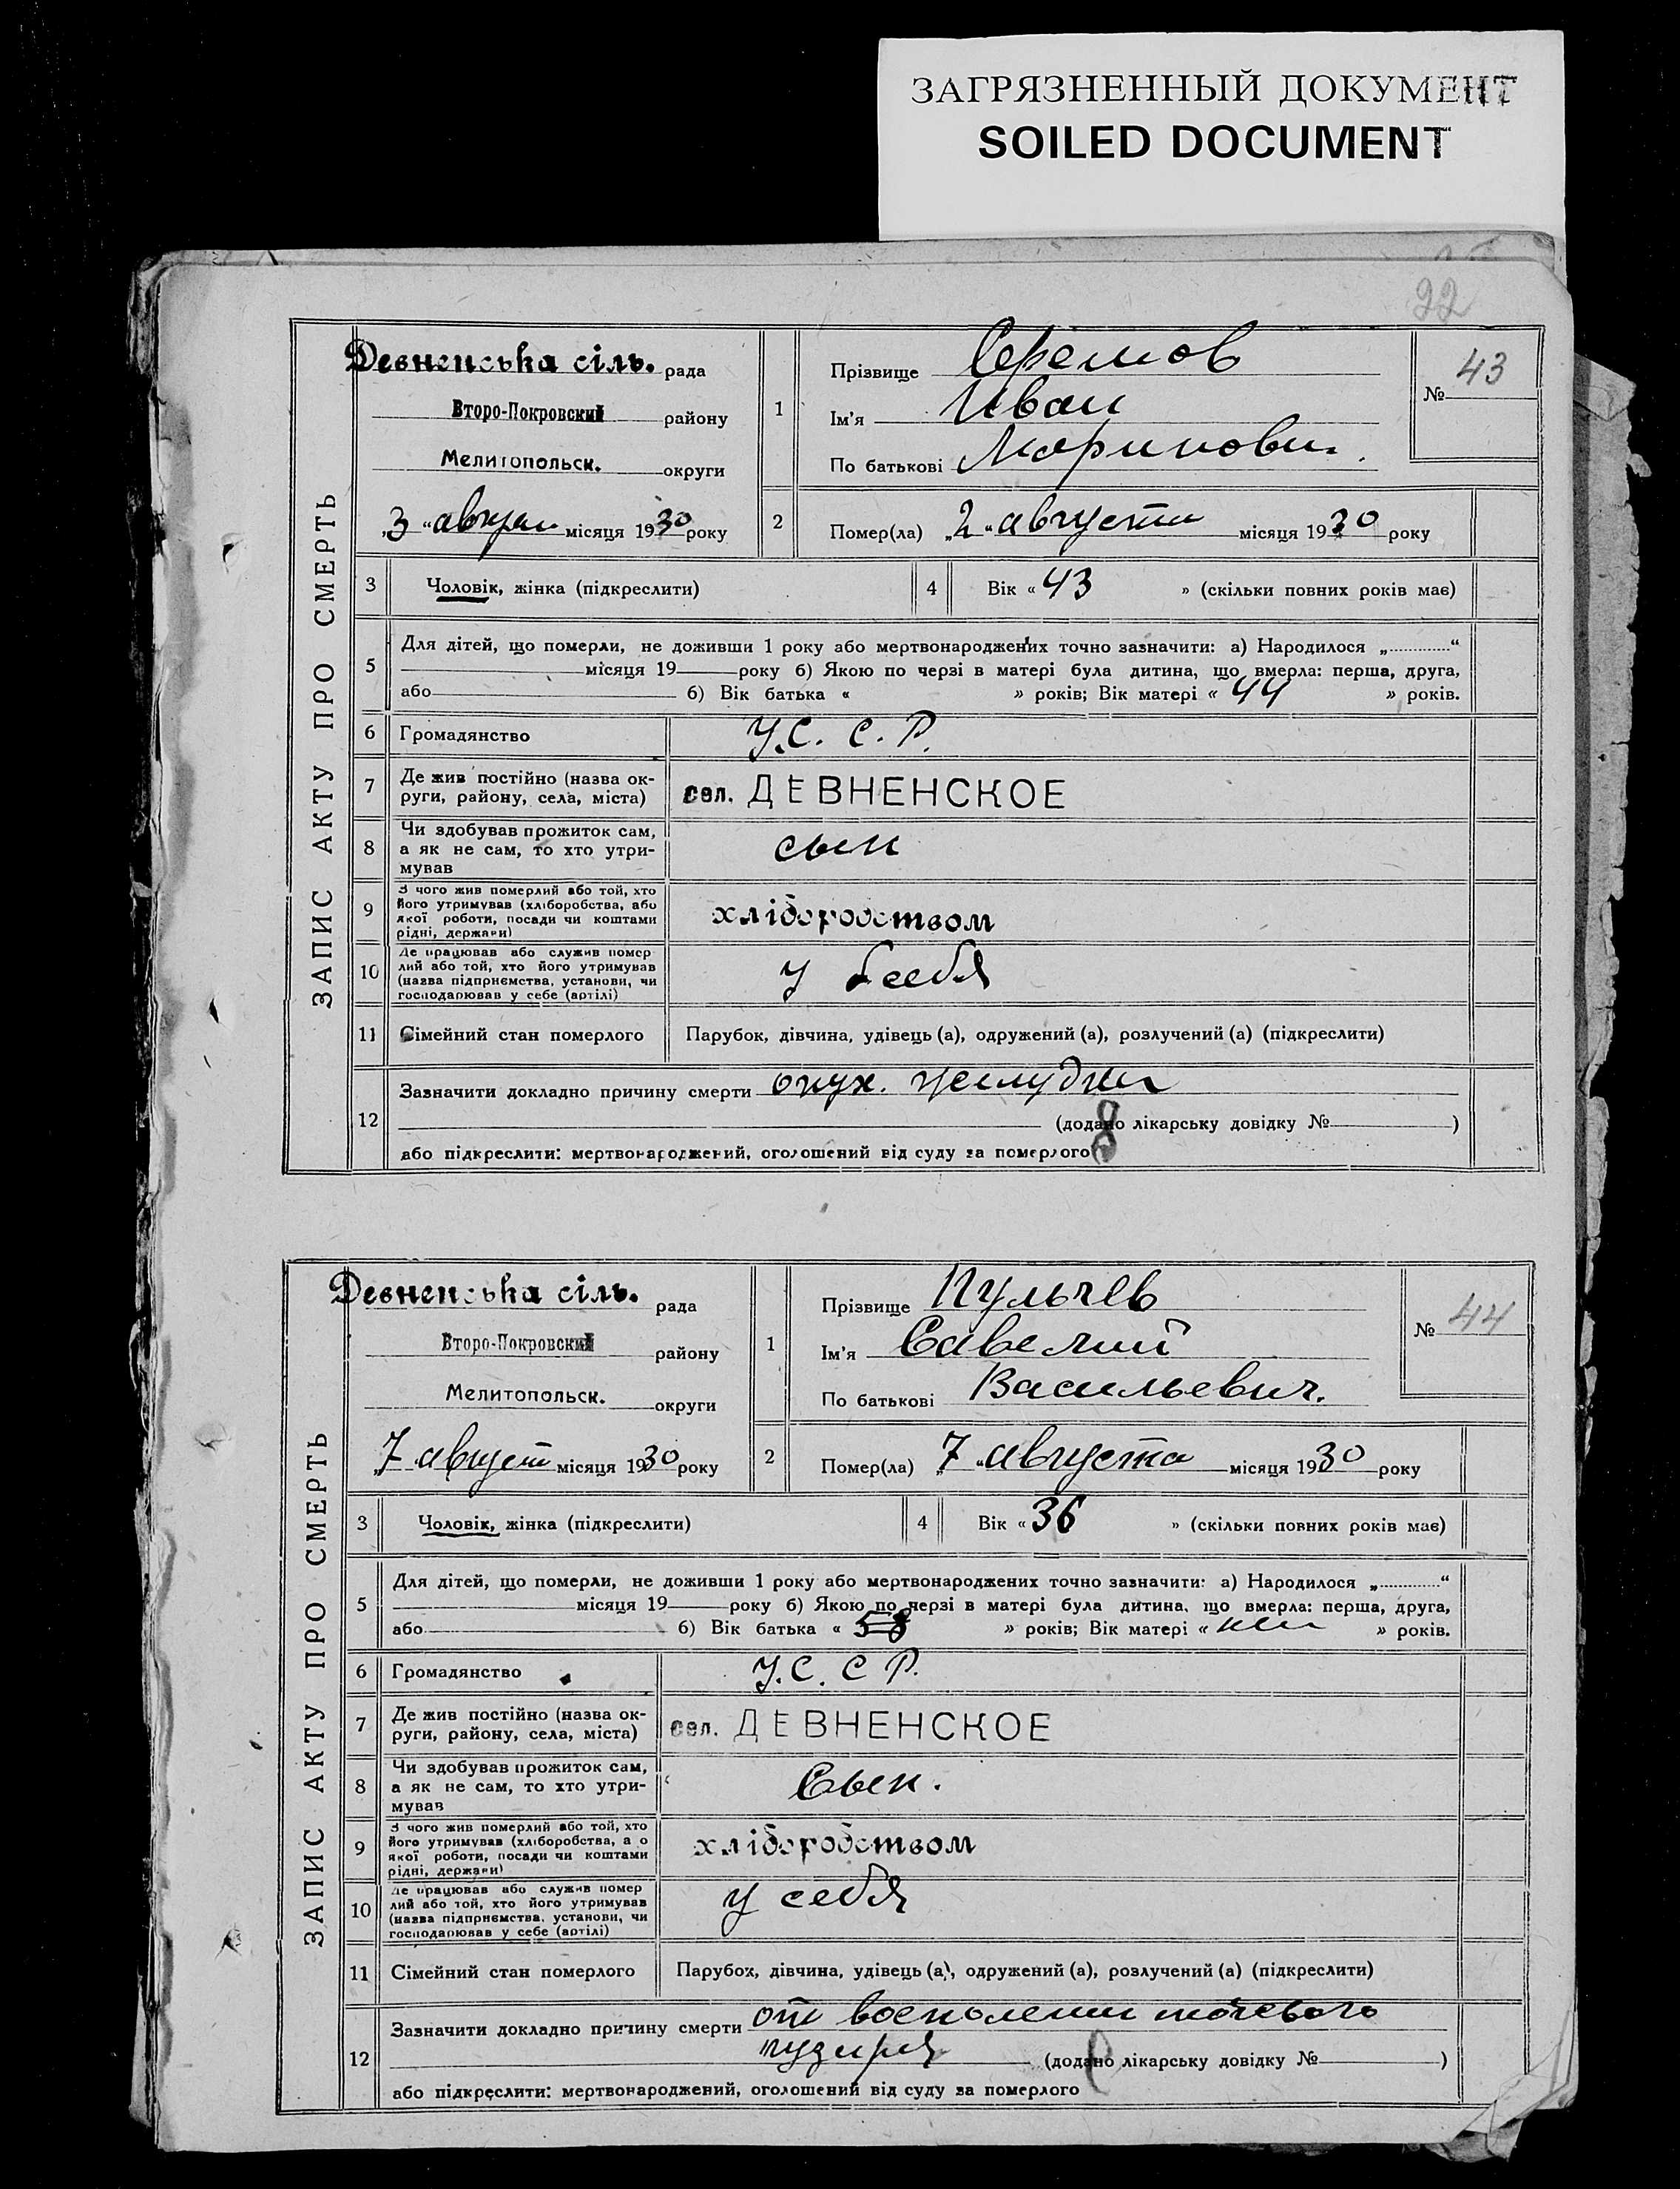 ЗАГРЯЗНЕННЫЙ ДОКУМЕНТ
SOILED DOCUMENT
22
ЗАПИС АКТУ ПРО СМЕРТЬ
Девненська сіль. рада
Второ-Покровский району
Мелитопольск. округи
„3“ август місяця 1930 року
1
Прізвище
Ім'я Иван
По батькові
№ 43
2
Помер(ла) „2“ августа місяця 1930 року
3
Чоловік, жінка (підкреслити)
4
Вік « 43 » (скільки повних років має)
5
Для дітей, що померли, не доживши 1 року або мертвонароджених точно зазначити: а) Народилося „ “
місяця 19 року б) Якою по черзі в матері була дитина, що вмерла: перша, друга,
або б) Вік батька « » років; Вік матері « 44 » років.
6
Громадянство У.С.С.Р.
7
Де жив постійно (назва ок-
руги, району, села, міста)
сел. ДЕВНЕНСКОЕ
8
Чи здобував прожиток сам,
а як не сам, то хто утри-
мував
сын
9
З чого жив померлий або той, хто
його утримував (хліборобства, або
якої роботи, посади чи коштами
рідні, держави)
хліборобством
10
Де працював або служив помер
лий або той, хто його утримував
(назва підприємства, установи, чи
господарював у себе (артілі)
у себя
11
Сімейний стан померлого
Парубок, дівчина, удівець (а), одружений (а), розлучений (а) (підкреслити)
12
Зазначити докладно причину смерти опух.
(додано лікарську довідку № )
або підкреслити: мертвонароджений, оголошений від суду за померлого
8
ЗАПИС АКТУ ПРО СМЕРТЬ
Девненська сіль. рада
Второ-Покровский району
Мелитопольск. округи
„7“ август місяця 1930 року
1
Прізвище Пульчев
Ім'я Савелий
По батькові Васильевич.
№ 44
2
Помер(ла) „7“ августа місяця 1930 року
3
Чоловік, жінка (підкреслити)
4
Вік « 36 » (скільки повних років має)
5
Для дітей, що померли, не доживши 1 року або мертвонароджених точно зазначити: а) Народилося „ “
місяця 19 року б) Якою по черзі в матері була дитина, що вмерла: перша, друга,
або б) Вік батька « 58 » років; Вік матері « » років.
6
Громадянство У.С.С.Р.
7
Де жив постійно (назва ок-
руги, району, села, міста)
сел. ДЕВНЕНСКОЕ
8
Чи здобував прожиток сам,
а як не сам, то хто утри-
мував
Сын.
9
З чого жив померлий або той, хто
його утримував (хліборобства, а о
якої роботи, посади чи коштами
рідні, держави)
хліборобством
10
Де працював або служив помер
лий або той, хто його утримував
(назва підприємства, установи, чи
господарював у себе (артілі)
у себя
11
Сімейний стан померлого
Парубок, дівчина, удівець (а), одружений (а), розлучений (а) (підкреслити)
12
Зазначити докладно причину смерти от мочевого
пузиря (додано лікарську довідку № )
або підкреслити: мертвонароджений, оголошений від суду за померлого